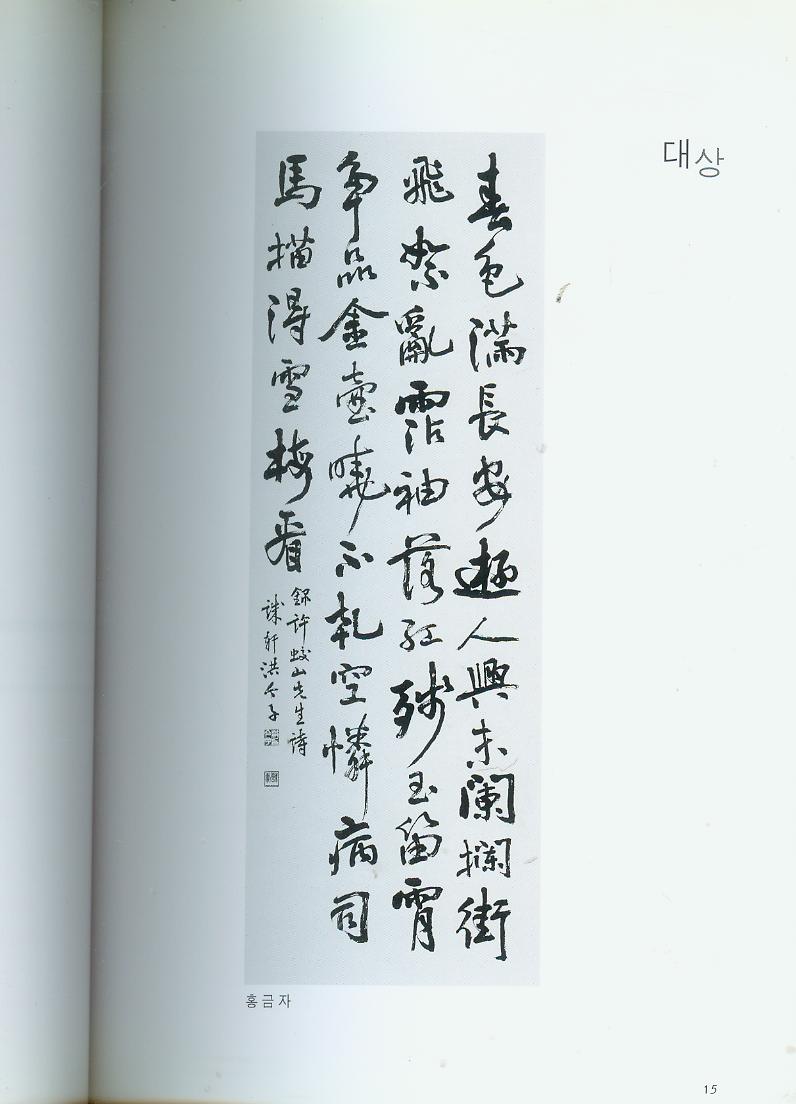 대상
春色滿長安遊人興未闌攔街
飛絮亂霑袖落紅殘玉笛宵
爭品金壺曉不乾空憐病司
馬描得雪梅看
錄許蛟山先生詩
軒洪今子
홍금자
15